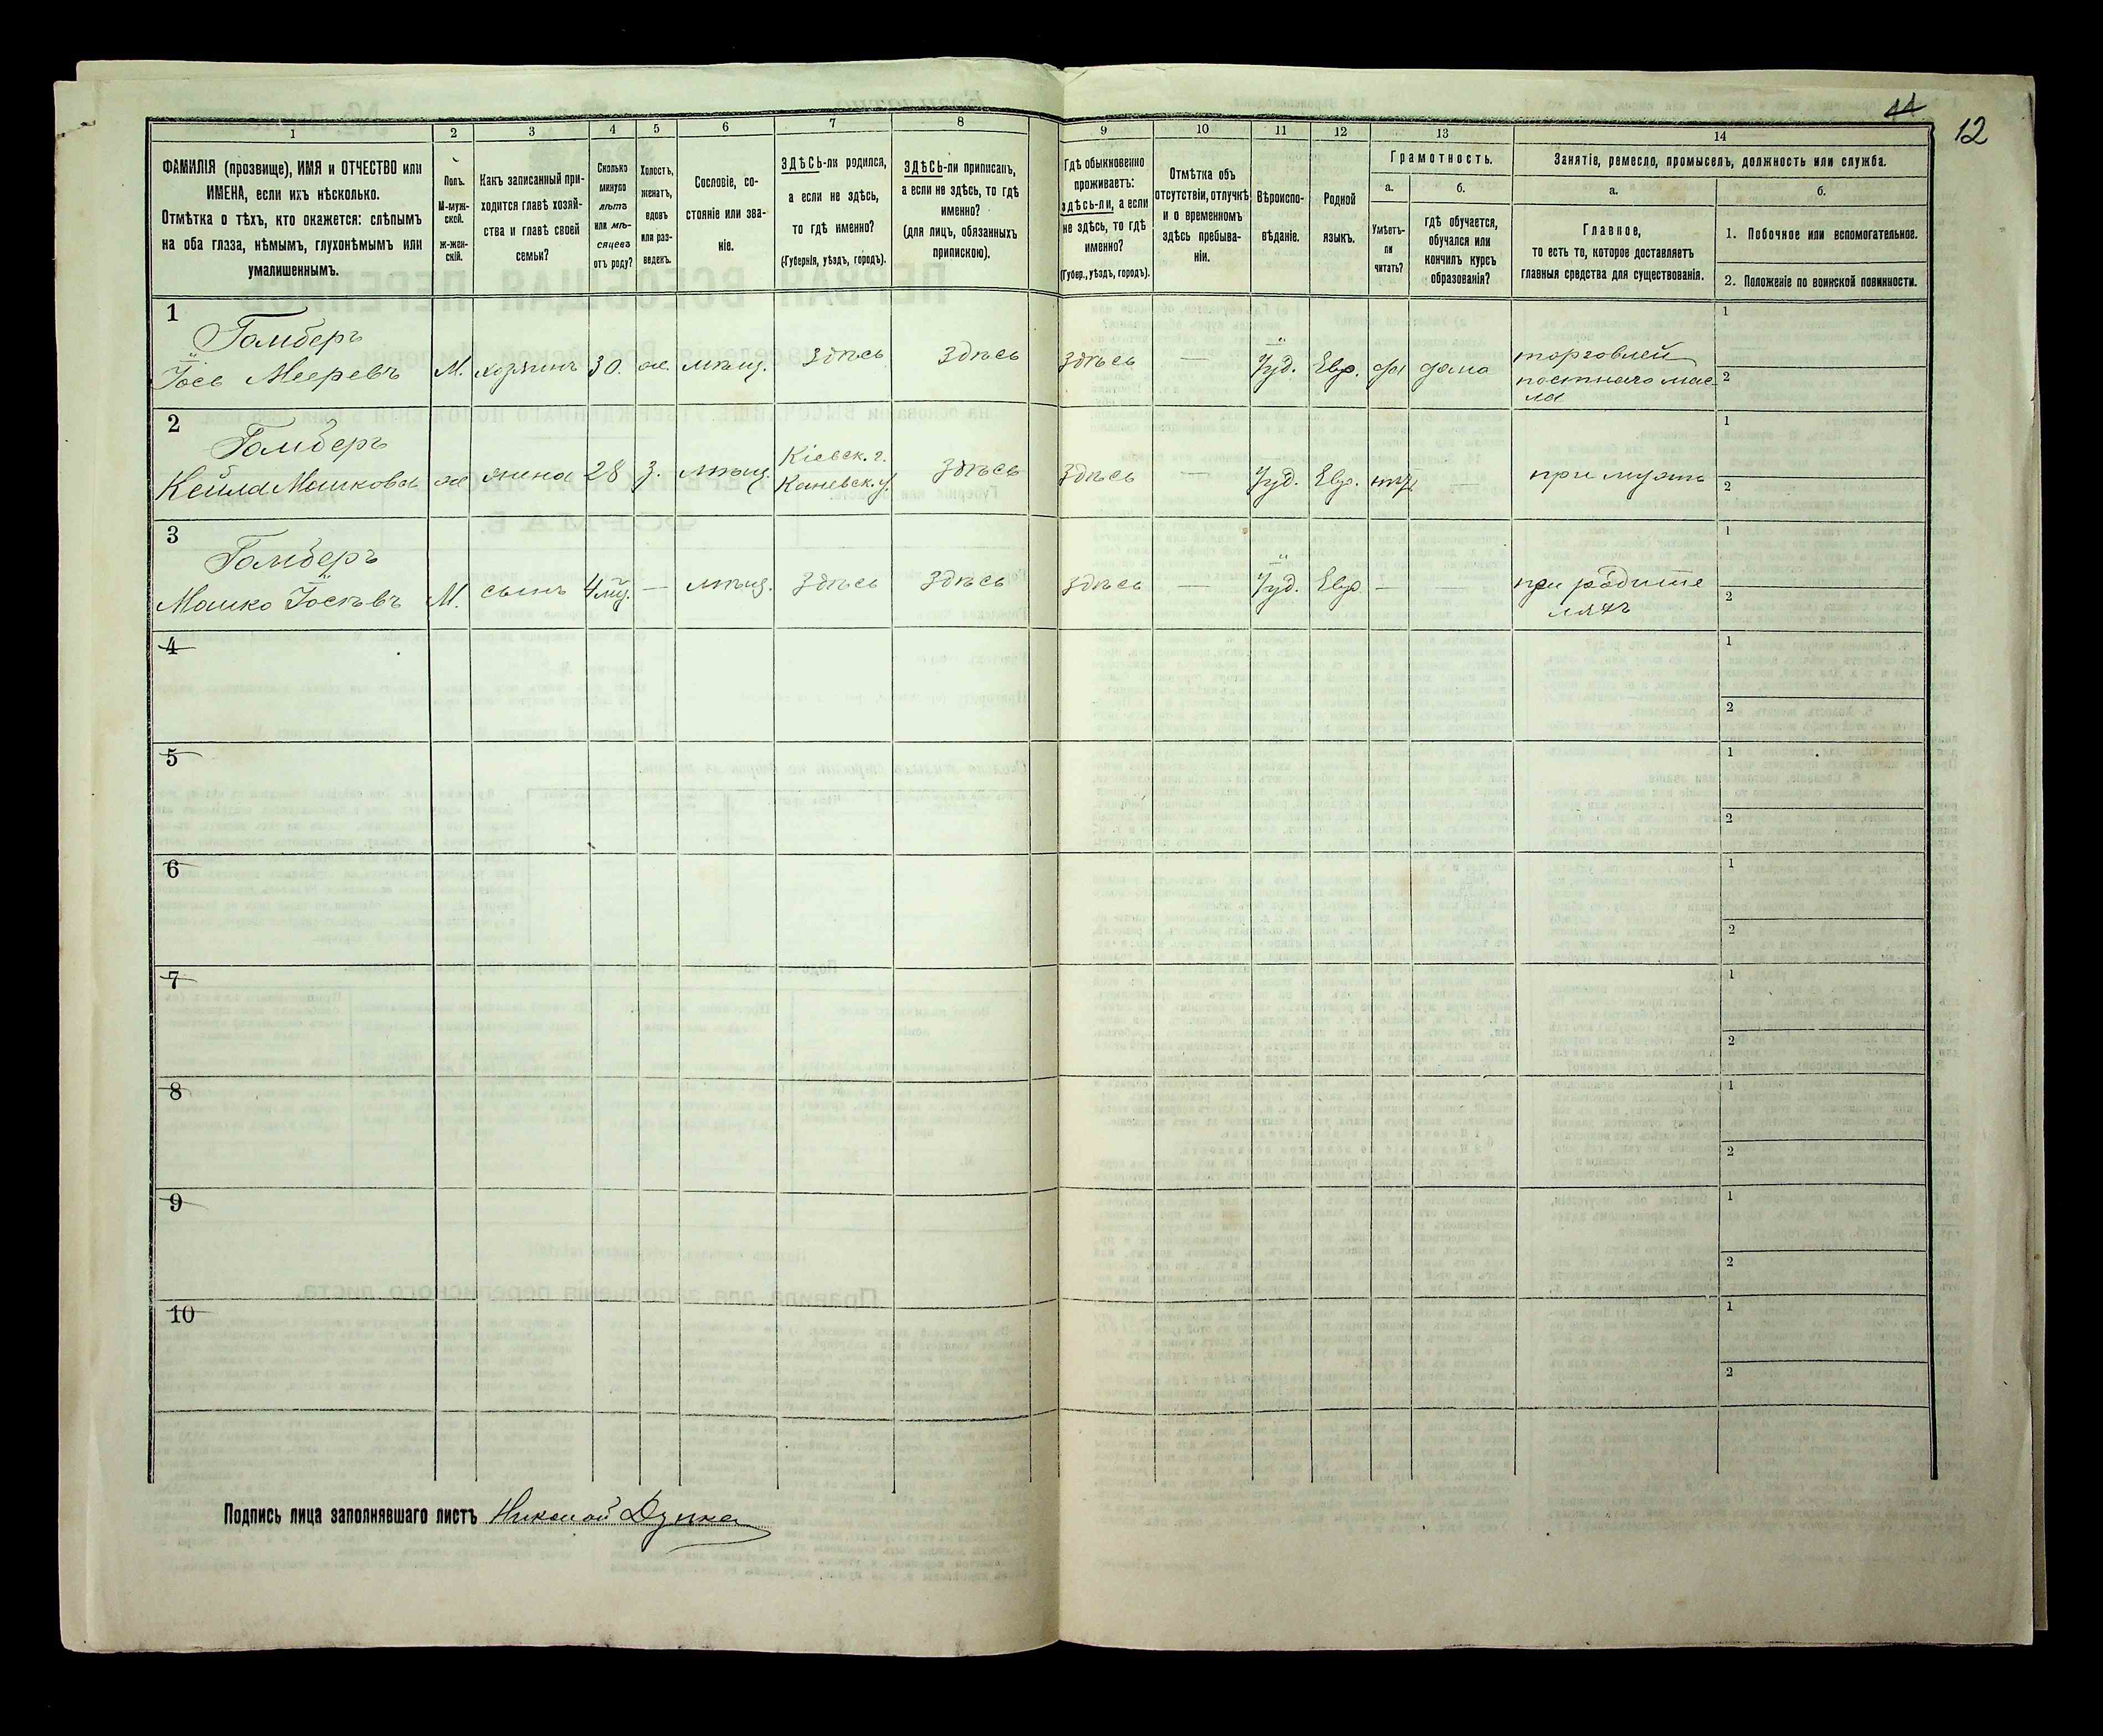 11
12
1 2 3 4 5 6 7 8 9 10 11 12 13 14
ФАМИЛІЯ (прозвище), ИМЯ и ОТЧЕСТВО или
ИМЕНА, если ихъ нѣсколько.
Отмѣтка о тѣхъ, кто окажется: слѣпымъ
на оба глаза, нѣмымъ, глухонѣмымъ или
умалишеннымъ.
Полъ.
М-муж-
ской.
ж-жен-
скій.
Какъ записанный при-
ходится главѣ хозяй-
ства и главѣ своей
семьи?
Сколько
минуло
лѣтъ
или мѣ-
сяцевъ
отъ роду?
Холостъ,
женатъ,
вдовъ
или раз-
веденъ.
Сословіе, со-
стояніе или зва-
ніе.
ЗДѢСЬ-ли родился,
а если не здѣсь,
то гдѣ именно?
(Губернія, уѣздъ, городъ).
ЗДѢСЬ-ли приписанъ,
а если не здѣсь, то гдѣ
именно?
(для лицъ, обязанныхъ
припискою).
Гдѣ обыкновенно
проживаетъ:
здѣсь-ли, а если
не здѣсь, то гдѣ
именно?
(Губер., уѣздъ, городъ).
Отмѣтка объ
отсутствіи, отлучкѣ
и о временномъ
здѣсь пребыва-
ніи.
Вѣроиспо-
вѣданіе.
Родной
языкъ.
Грамотность.
а.
Умѣетъ-
ли
читать?
б.
гдѣ обучается,
обучался или
кончилъ курсъ
образованія?
Занятіе, ремесло, промыселъ, должность или служба.
а.
Главное,
то есть то, которое доставляетъ
главныя средства для существованія.
б.
1. Побочное или вспомогательное.
2. Положеніе по воинской повинности.
1
Гомберъ
Іось Мееревъ М. хозяинъ 30. ж. мѣщ. Здѣсь Здѣсь Здѣсь — Іуд. Евр. да дома торговлей
постнаго мас-
ла
1
2
2
Гомберъ
Кейла Мошкова ж жена 28 з. мѣщ. Кіевск. г.
Каневск. у Здѣсь Здѣсь — Іуд. Евр. нѣ — при мужѣ
1
2
3
Гомберъ
Мошко Іосевъ М. сынъ 4 мц. — мѣщ. Здѣсь Здѣсь Здѣсь — Іуд. Евр — — при родите
ляхъ
1
2
4
1
2
5
1
2
6
1
2
7
1
2
8
1
2
9
1
2
10
1
2
Подпись лица заполнявшаго листъ Николай